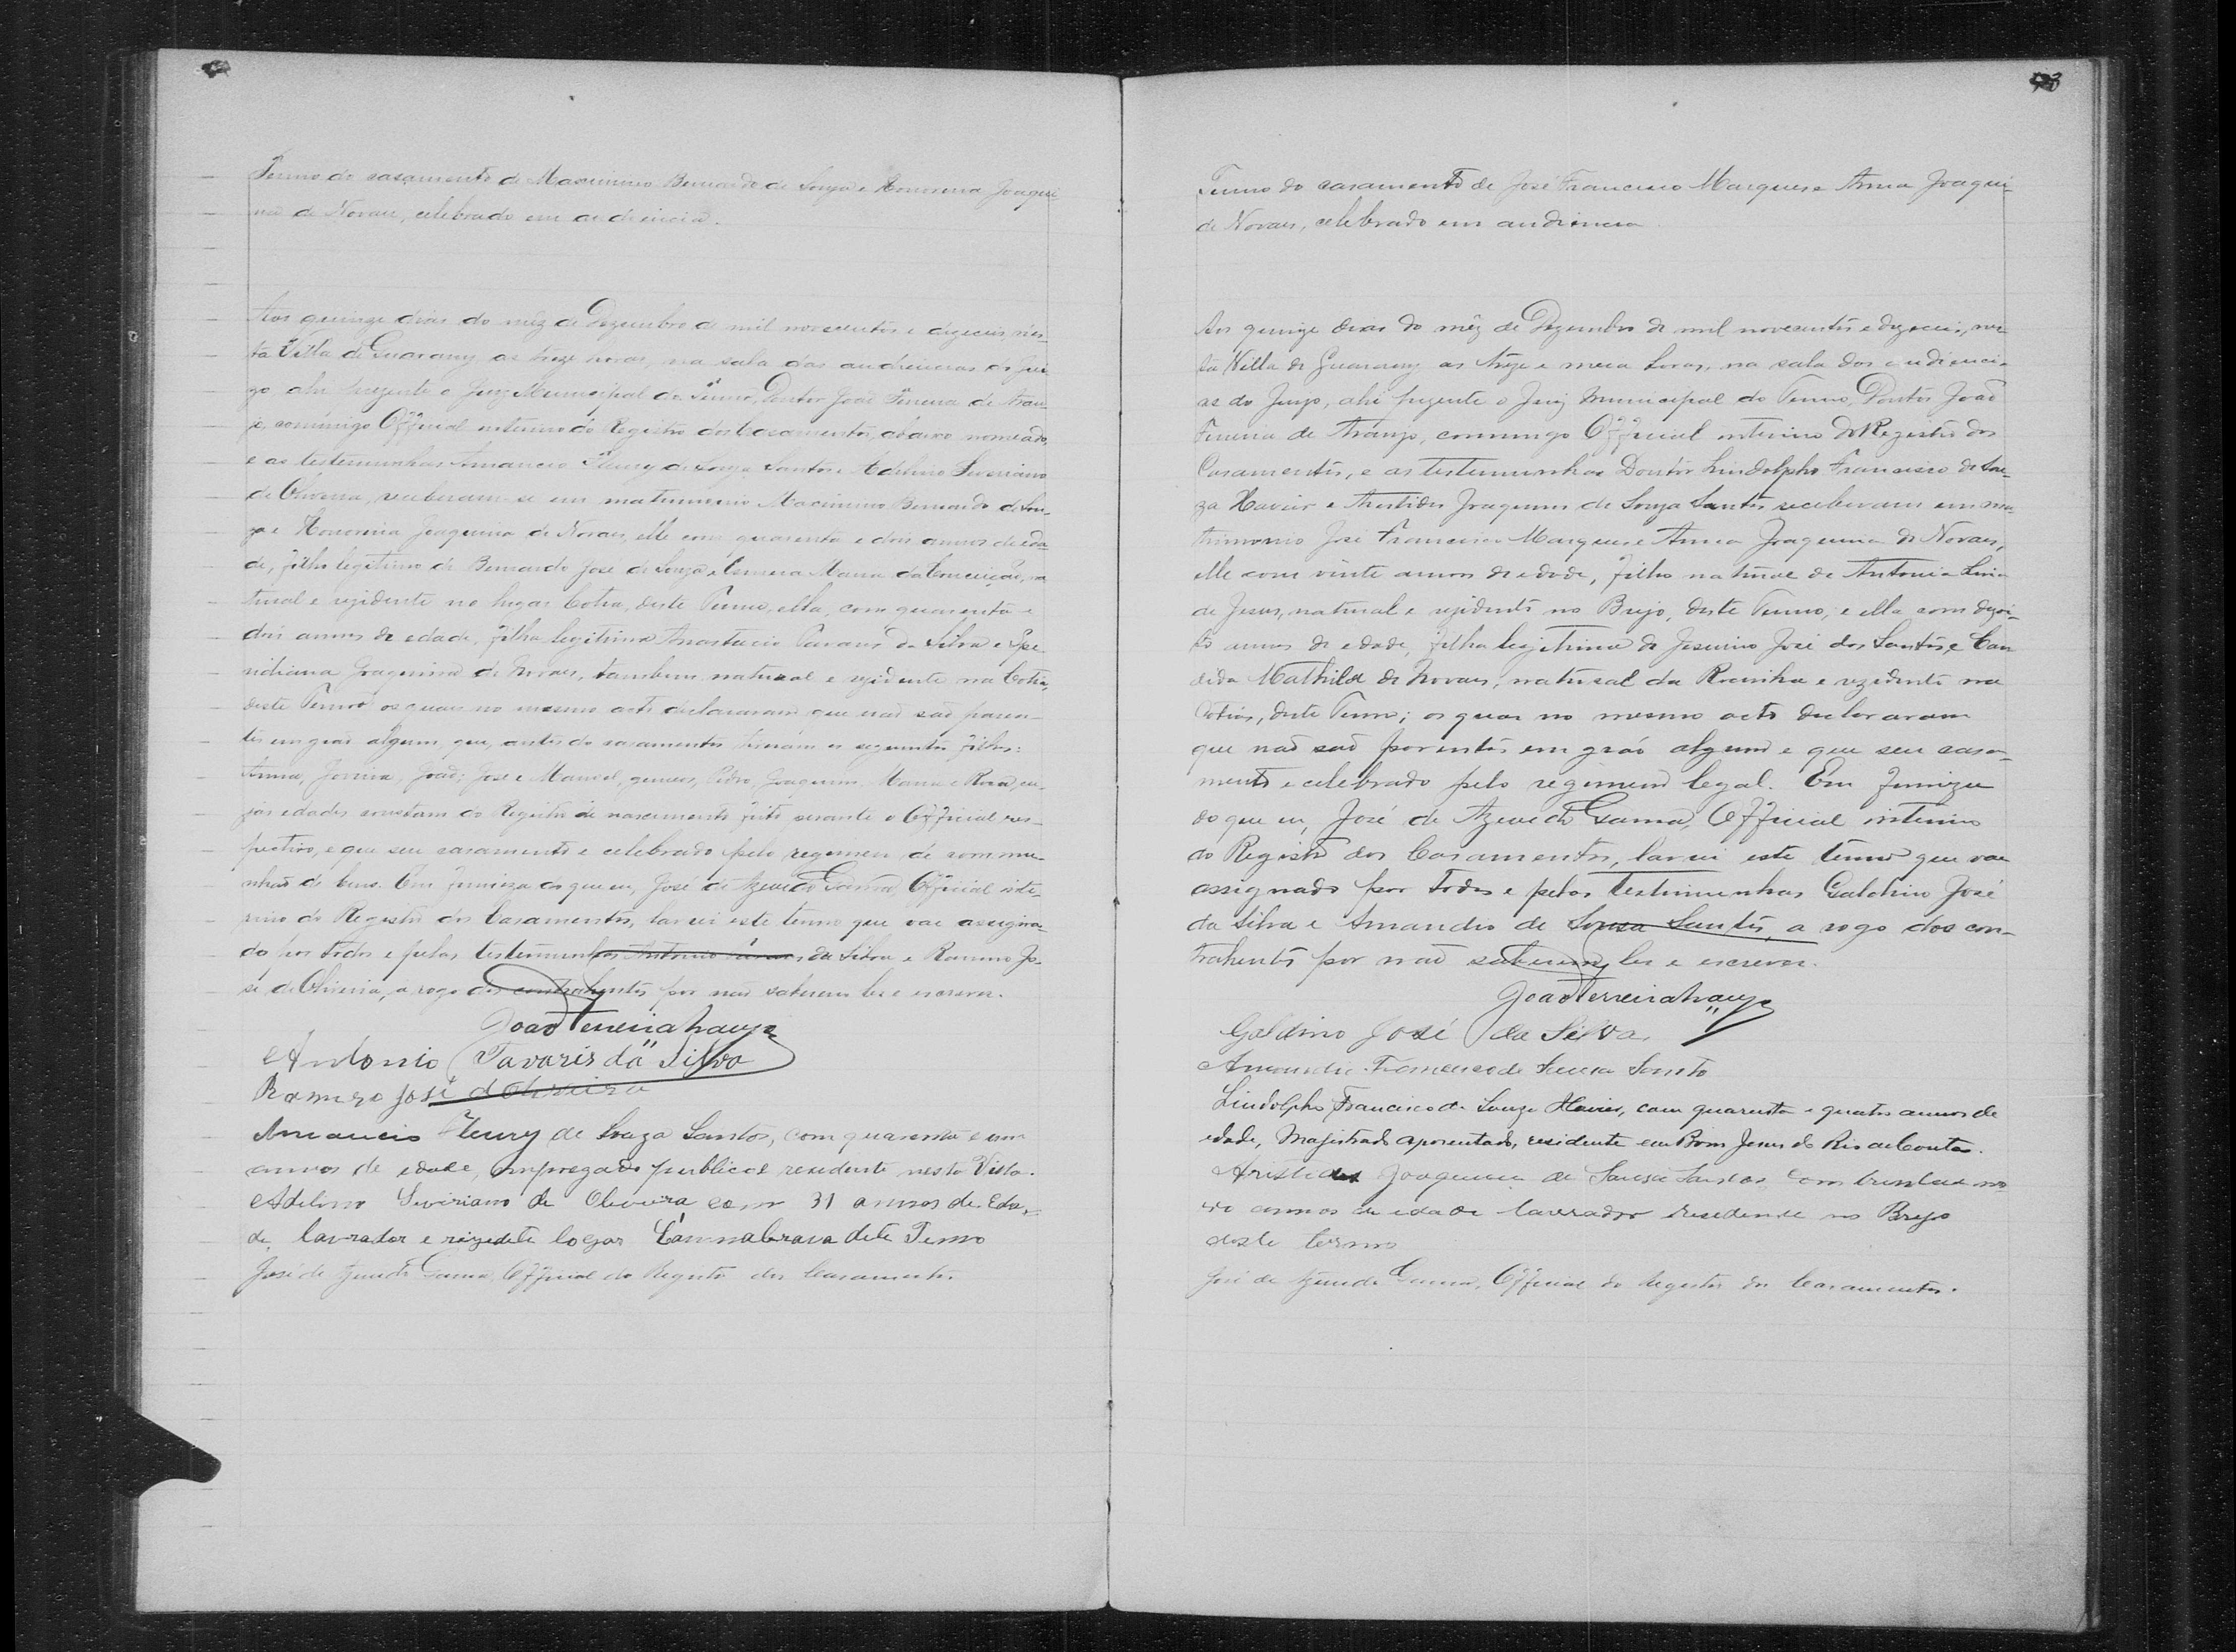 Termo do casamento de Maximino Bernardo de Souza e Honorina Joaqui-
na de Novaes, celebrado em audiencia.
Aos quinze dias do mêz de Dezembro de mil novecentos e dezeseis, nes-
ta Villa de Guarany as treze horas, na sala das audiencias do Jui-
zo ahi prezente o Juiz Municipal do Termo, Doutor João Ferreira de Arau-
jo, commigo Official interino do Registro dos Casamentos, abaixo nomeado,
e as testemunhas Amancio Fleury de Souza Santos e Adelino Severiano
de Oliveira, receberam-se em matrimonio Maximino Bernardo de Sou-
za e Honorina Joaquina de Novaes, elle com quarenta e dois annos de eda-
de, filho legitimo de Bernardo José de Souza e Maria da Conceição, na-
tural e rezidente no lugar Cotia, deste Termo, ella, com quarenta e
dois annos de edade, filha legitima Anastacio Tavares da Silva e Spe-
ridiana Joaquina de Novaes, tambem natural e rezidente na Cotia,
deste Termo os quaes no mesmo acto declararam que não são paren-
tes em gráo algum, que, antes do casamento tiveram os seguintes filhos:
Anna, João; José e Manoel, gemeos, Pedro, Joaquim, Maria e Rosa, cu-
jas edades constam do Registro de nascimento feito perante o Official res-
pectivo, e que seu casamento e celebrado pelo regimen de commu-
nhão de bens. Em firmeza do que eu, José de Azevedo Gama, Official inte-
rino do Registro dos Casamentos, lavrei este termo que vae assigna-
do por todos e pelas testemunhas Antonio Tavares da Silva e Ramiro Jo-
sé de Oliveira, a rogo dos contrahentes por não saberem ler e escrever.
João Ferreira Araujo
Antonio Tavaris da Silva
Ramiro José d Oliveira
Amancio Fleury de Souza Santos, com quarenta e um
annos de edade, empregado publico e residente nesta Villa.
Adelino Siviriano de Oliveira com 31 annos de Eda-
de, lavrador e rezedete logar Cannabrava dete Termo
José de Azevedo Gama, Official do Registro dos Casamentos.
Termo do casamento de José Francisco Marques e Anna Joaqui-
de Novaes, celebrado em audiencia
Aos quinze dias do mêz de Dezembro de mil novecentos e dezeseis, nes-
ta Villa de Guarany as treze e meia horas, na sala dos audienci-
as do Juizo, ahi prezente o Juiz Municipal do Termo, Doutor João
Ferreira de Araujo, commigo Official interino do Registro dos
Casamentos, e as testemunhas Doutor Lindolpho Francisco de Sou-
za Xavier e Aristides Joaquim de Souza Santos receberam em ma-
trimonio José Francisco Marques e Anna Joaquina de Novaes,
elle com vinte annos de edade, filho natural de Antonia
de Jesus, natural e rezidente no Brejo, deste Termo, e ella com dezoi-
to annos de edade, filha legitima de Jesuino José dos Santos e Can-
dida Mathilde de Novaes, natural da Rocinha e rezidente na
Cotia, deste Termo; os quaes no mesmo acto declararam
que não são parentes em gráo algum e que seu casa-
mento e celebrado pelo regimem legal. Em firmeza
do que eu, José de Azevedo Gama, Official interino
do Registro dos Casamentos, lavrei este termo que vae
assignado por todos e pelas testemunhas Galdino José
da Silva e Amandio de Souza Santos, a rogo dos con-
trahentes por não saberem ler e escrever.
João Ferreira Araujo
Galdino José da Silva.
Amandio Francisco de Souza Santo
Lindolpho Francisco de Souza Xavier, com quarenta e quatro annos de
edade, Magistrado aposentado, residente em Bom Jesus do Rio de Contas.
Aristides Joaquim de Souza Santos com trinta e no-
ve annos de idade lavrador residente no Brejo
deste termo
José de Azevedo Gama, Official do Registro dos Casamentos.